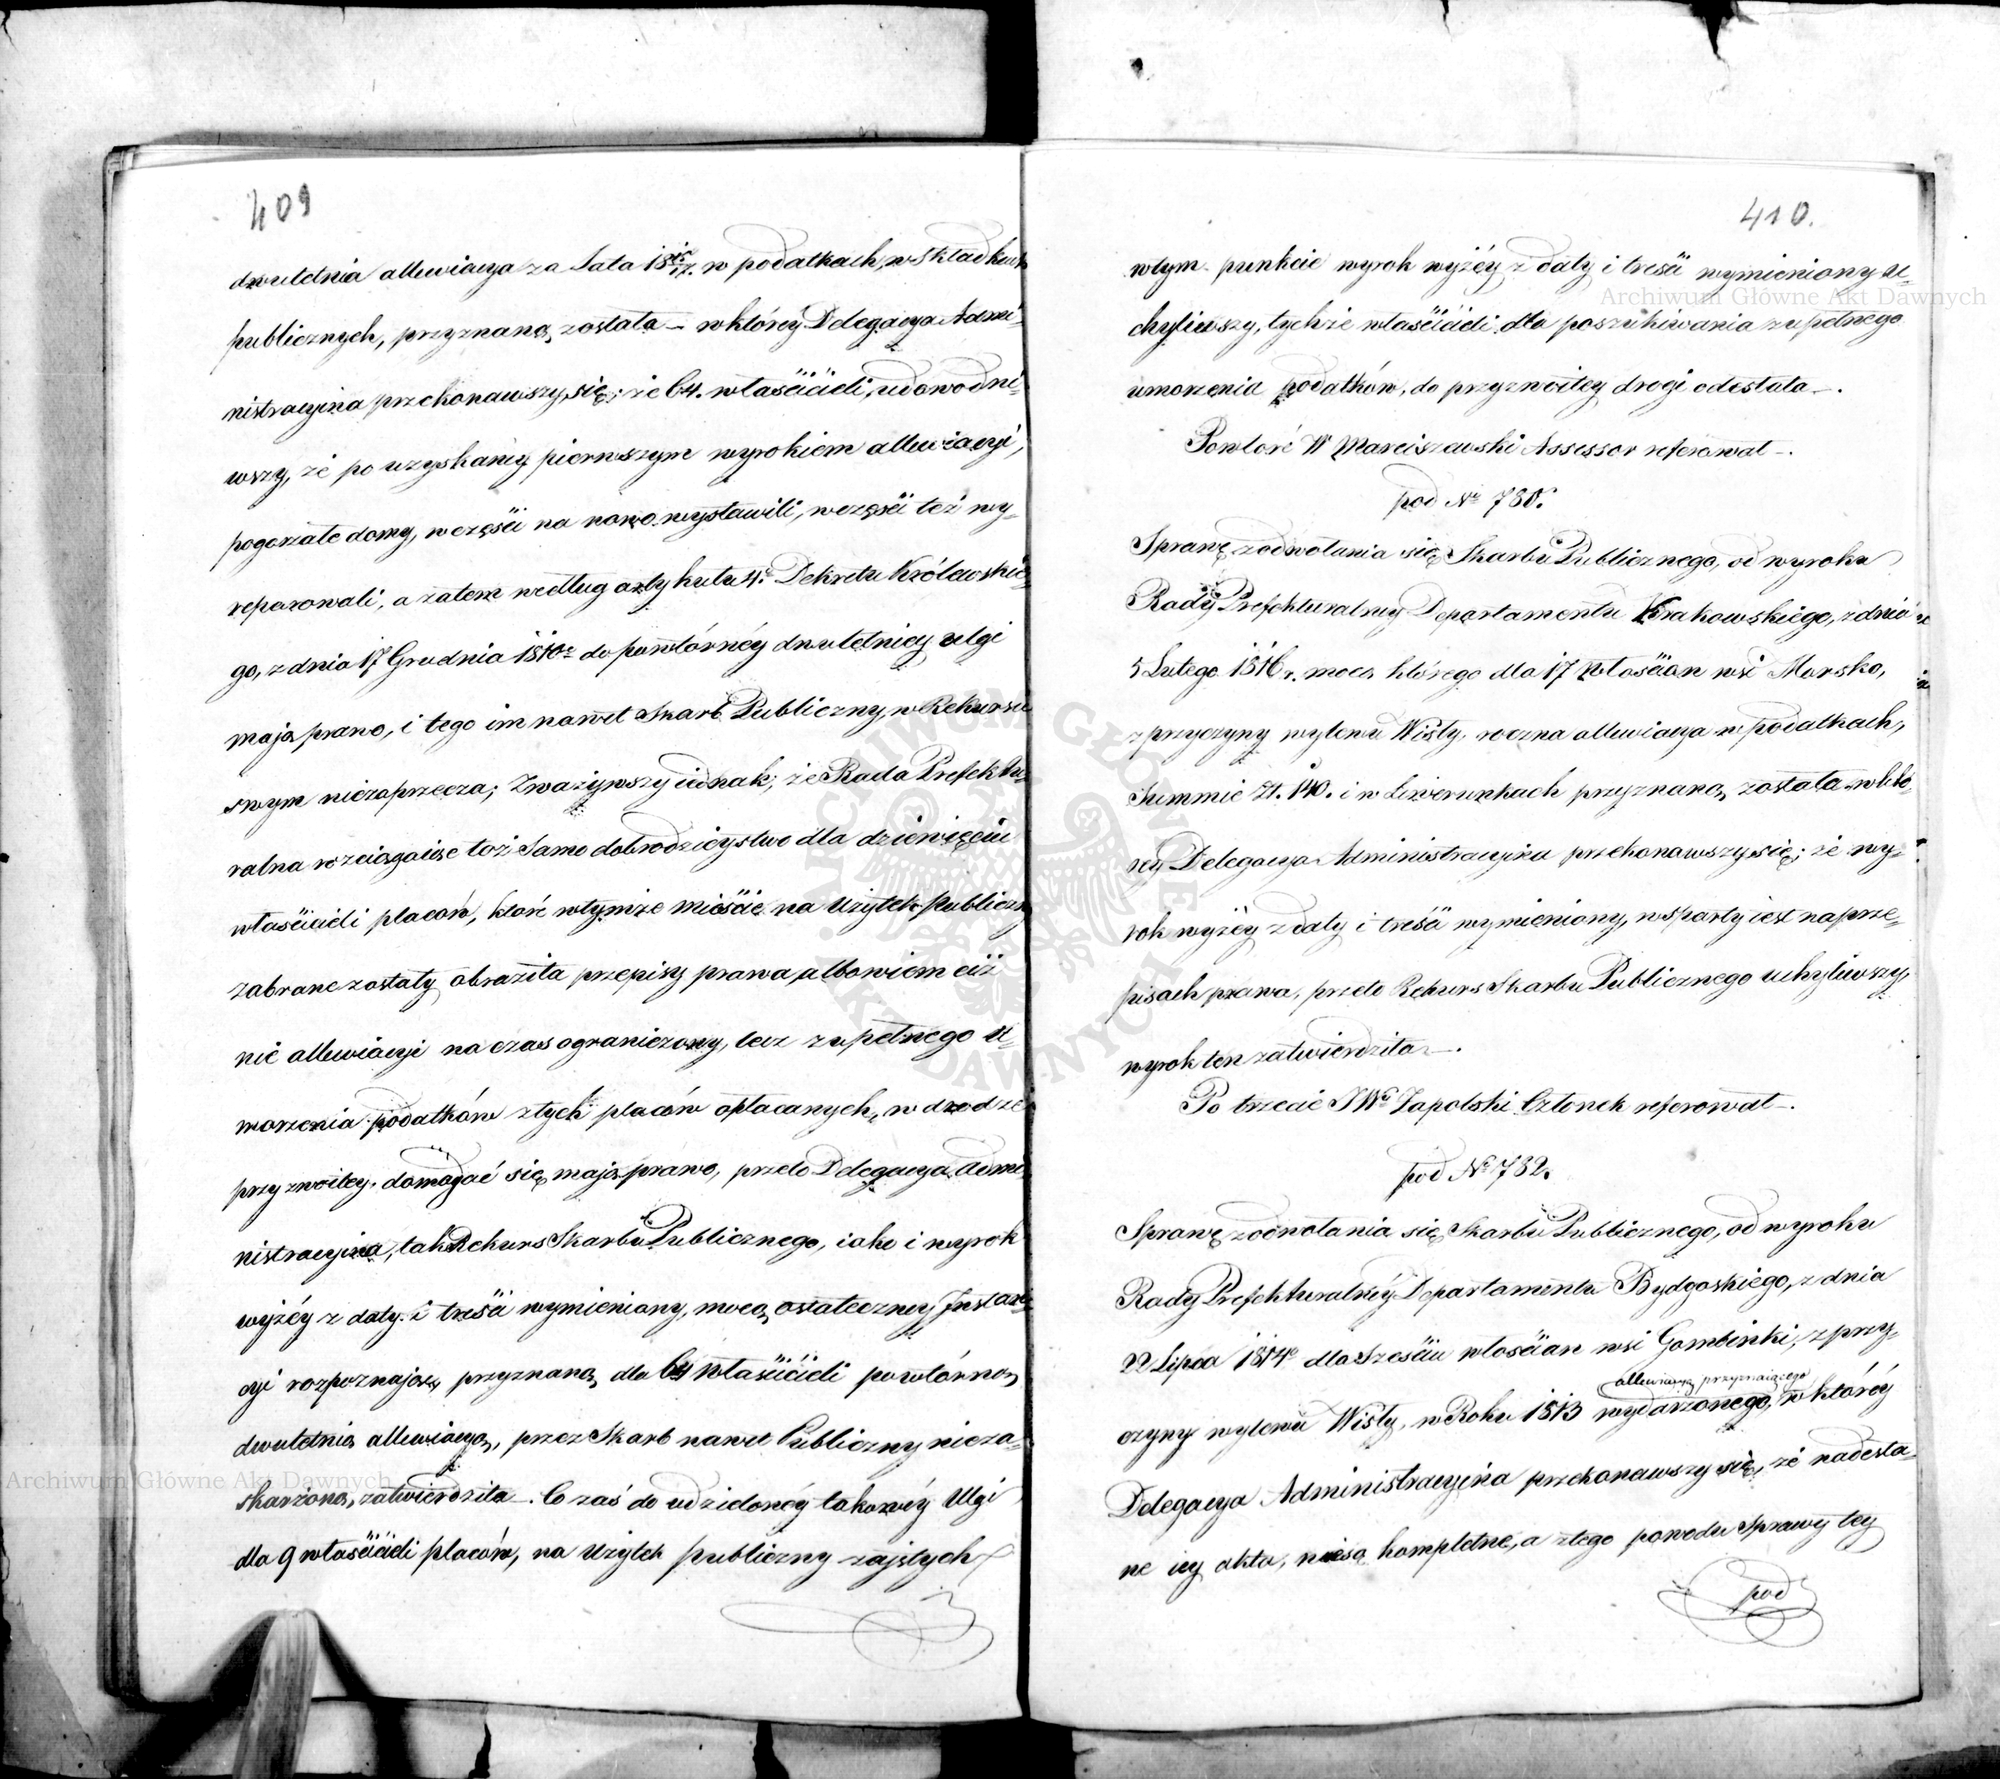 409
dwuletnia allewiacya za Lata 18 15/17. w podatkach, w składkach
publicznych, przyznaną została – w którey Delegacya Admi-
nistracyina przekonawszy się; że 64. właścicieli, udowodni-
wszy, że po uzyskaniey pierwszym wyrokiem allewiacyi,
pogorzałe domy, w części na nowo wystawili, w części też wy-
reparowali, a zatem według artykułu 4º Dekretu Królewskie-
go, z dnia 17 Grudnia 1810 r. do powtórnéy dwuletniey ulgi
maią prawo, i tego im nawet Skarb Publiczny, w Rekursie
swym niezaprzecza; Zważywszy iednak; że Rada Prefektu-
ralna rozciągaiąc toż Samo dobrodzieystwo dla dziewięciu
właścicieli placów, które w tymże mieście na użytek publiczny
zabrane zostały obraziła przepisy prawa, albowiem ciż
nie allewiacyi na czas ograniczony, lecz zupełnego u-
morzenia podatków z tych placów opłacanych, w drodze
przyzwoitey, domagać się maią prawo, przeto Delegacya Admi-
nistracyina, tak Rekurs Skarbu Publicznego, iako i wyrok
wyżéy z daty i treści wymieniony, mocą ostateczney Instan-
cyi rozpoznaiąc, przyznaną dla 64 właścicieli powtórną
dwuletnią allewiacyą, przez Skarb nawet Publiczny nieza-
skarżoną, zatwierdziła –. Co zaś do udzielonéy takowéy Ulgi
dla 9 właścicieli placów, na użytek publiczny zaiętych
410.
w tym punkcie wyrok wyżéy z daty i treści wymieniony u-
chyliwszy, tychże właścicieli dla poszukiwania zupełnego
umorzenia podatków, do przyzwoitey drogi odesłała –.
Powtóre W Marciszewski Assessor referował –.
pod Nº 780.
Sprawę z odwołania się Skarbu Publicznego, od wyroku
Rady Prefekturalney Departamentu Krakowskiego, z dnia
5 Lutego 1816 r. mocą którego dla 17 włościan wsi Morsko,
z przyczyny wylewu Wisły, roczna allewiacya w podatkach,
Summie Zł. 140. i w Liwerunkach przyznaną została – w któ-
rey Delegacya Administracyina przekonawszy się; że wy-
rok wyżéy z daty i treści wymieniony, wsparty iest na prze-
pisach prawa, przeto Rekurs Skarbu Publicznego uchyliwszy,
wyrok ten zatwierdziła –.
Po trzecie JWº Zapolski Członek referował –.
pod Nº 782.
Sprawę z odwołania się Skarbu Publicznego, od wyroku
Rady Prefekturalnéy Departamentu Bydgoskiego, z dnia
22 Lipca 1814º dla sześciu włościan wsi Gombinki, z przy-
czyny wylewu Wisły, w Roku 1813 wydarzonego, w któréy
allewiacyą przyznaiącego
Delegacya Administracyina przekonawszy się, że nadesła-
ne iey akta, niesą kompletne, a z tego powodu Sprawy tey
pod
Archiwum Główne Akt Dawnych
Archiwum Główne Akt Dawnych
ARCHIWUM GŁÓWNE AKT DAWNYCH